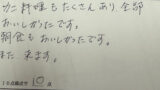 カニ料理もたくさんあり、全部
おいしかったです。
朝食も おいしかったです。
また 来ます。
10点満点で 10 点